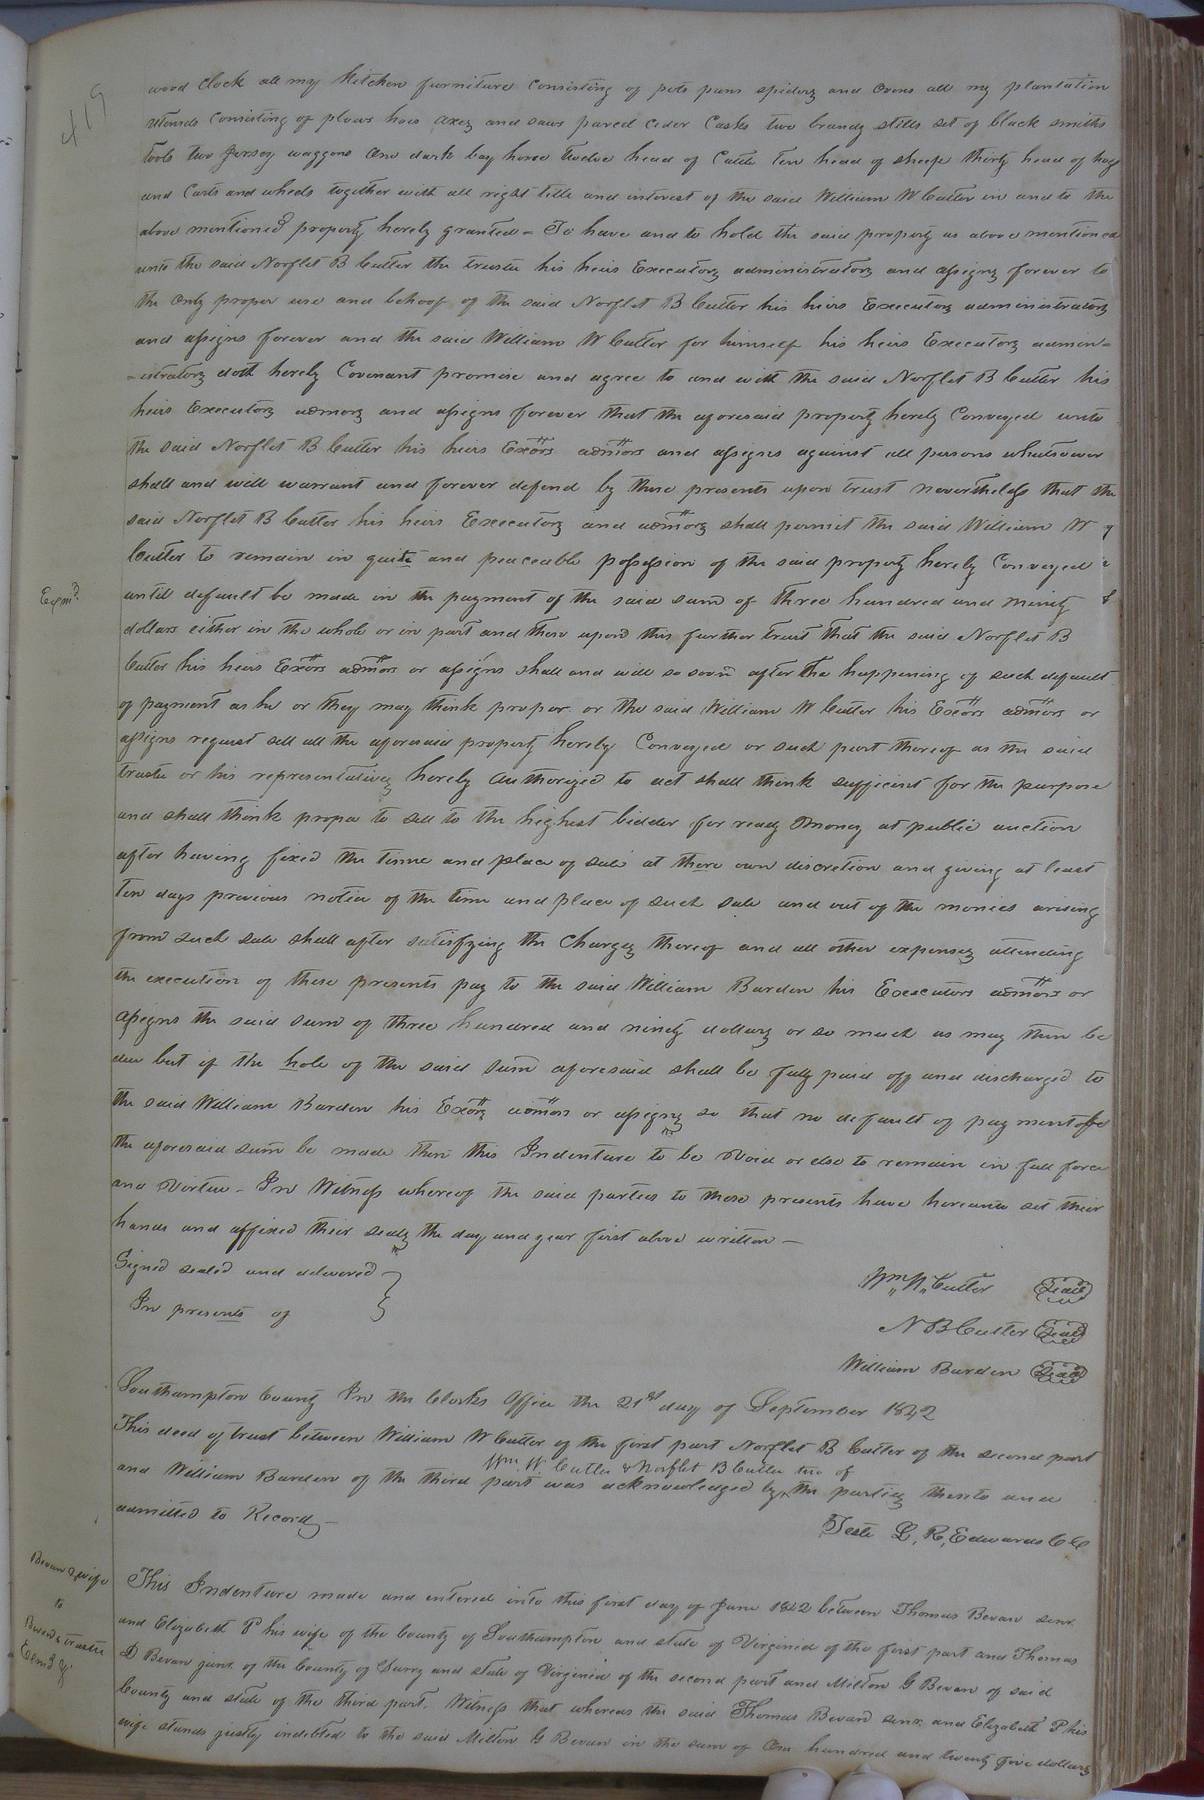 419
wood clock all my kitchen furniture consisting of pots pans spiders and ovens all my plantation
utensels consisting of plows hoes axes and saws pared cider casks two brandy stills set of black smiths
tools two Jersey waggons one dark bay horse twelve head of cattle ten head of sheep thirty head of hogs
and carts and wheels together with all right title and interest of the said William W Cutler in and to the
above mentioned property hereby granted - To have and to hold the said property as above mentioned
unto the said Norflet B Cutler the trustee his heirs Executors administrators and assigns forever to
the only proper use and behoof of the said Norflet B Cutler his heirs Executors administrators
and assigns forever and the said William W Cutler for himself his heirs Executors admin-
-istrators doth hereby Covenant promise and agree to and with the said Norflet B Cutler his
heirs Executors admors and assigns forever that the aforesaid property hereby Conveyed unto
the said Norflet B Cutler his heirs Exors admors and assigns against all persons whatsoever
shall and will warrant and forever defend by these presents upon trust nevertheless that the
said Norflet B Cutler his heirs Executors and admors shall permit the said William W
Cutler to remain in quite and peaceable possession of the said property hereby Conveyed
Exmd.
until default be made in the payment of the said sum of three hundred and ninety
dollars either in the whole or in part and then upon this further trust that the said Norflet B
Cutler his heirs Exors admors or assigns shall and will so soon after the happening of such default
of payment as he or they may think proper or the said William W Cutler his Exors admors or
assigns request sell all the aforesaid property hereby Conveyed or such part thereof as the said
trustee or his representatives hereby authorized to act shall think sufficient for the purpose
and shall think proper to sell to the highest bidder for ready money at public auction
after having fixed the time and place of sale at there own discretion and giving at least
ten days previous notice of the time and place of such sale and out of the monies arising
from such sale shall after satisfying the charges thereof and all other expenses attending
the execution of these presents pay to the said William Barden his Executors admors or
assigns the said sum of three hundred and ninety dollars or so much as may then be
due but if the hole of the said sum aforesaid shall be fully paid off and discharged to
the said William Barden his Exors admors or assigns so that no default of payment of
the aforesaid sum be made then this Indenture to be void or else to remain in full force
and virtue - In Witness whereof the said parties to these presents have hereunto set their
hands and affixed their seals the day and year first above written -
Signed sealed and delivered }
In presents of }
Wm W Cutler Seal
N B Cutler Seal
William Barden Seal
Southampton County In the Clerks Office the 21st day of September 1842
This deed of trust between William W Cutler of the first part Norflet B Cutler of the second part
Wm. W. Cutler & Norflet B Cutler two of
and William Barden of the third part was acknowledged by the parties thereto and
admitted to Record -
Teste L. R. Edwards CC
Bevan & wife
to
Bevans trustee
This Indenture made and entered into this first day of June 1842 between Thomas Bevan senr.
and Elizabeth P his wife of the County of Southampton and state of Virginia of the first part and Thomas
D Bevan junr. of the County of Surry and state of Virginia of the second part and Milton G Bevan of said
County and state of the third part. Witness that whereas the said Thomas Bevan senr. and Elizabeth P his
wife stands justly indebted to the said Milton G Bevan in the sum of One hundred and twenty five dollars